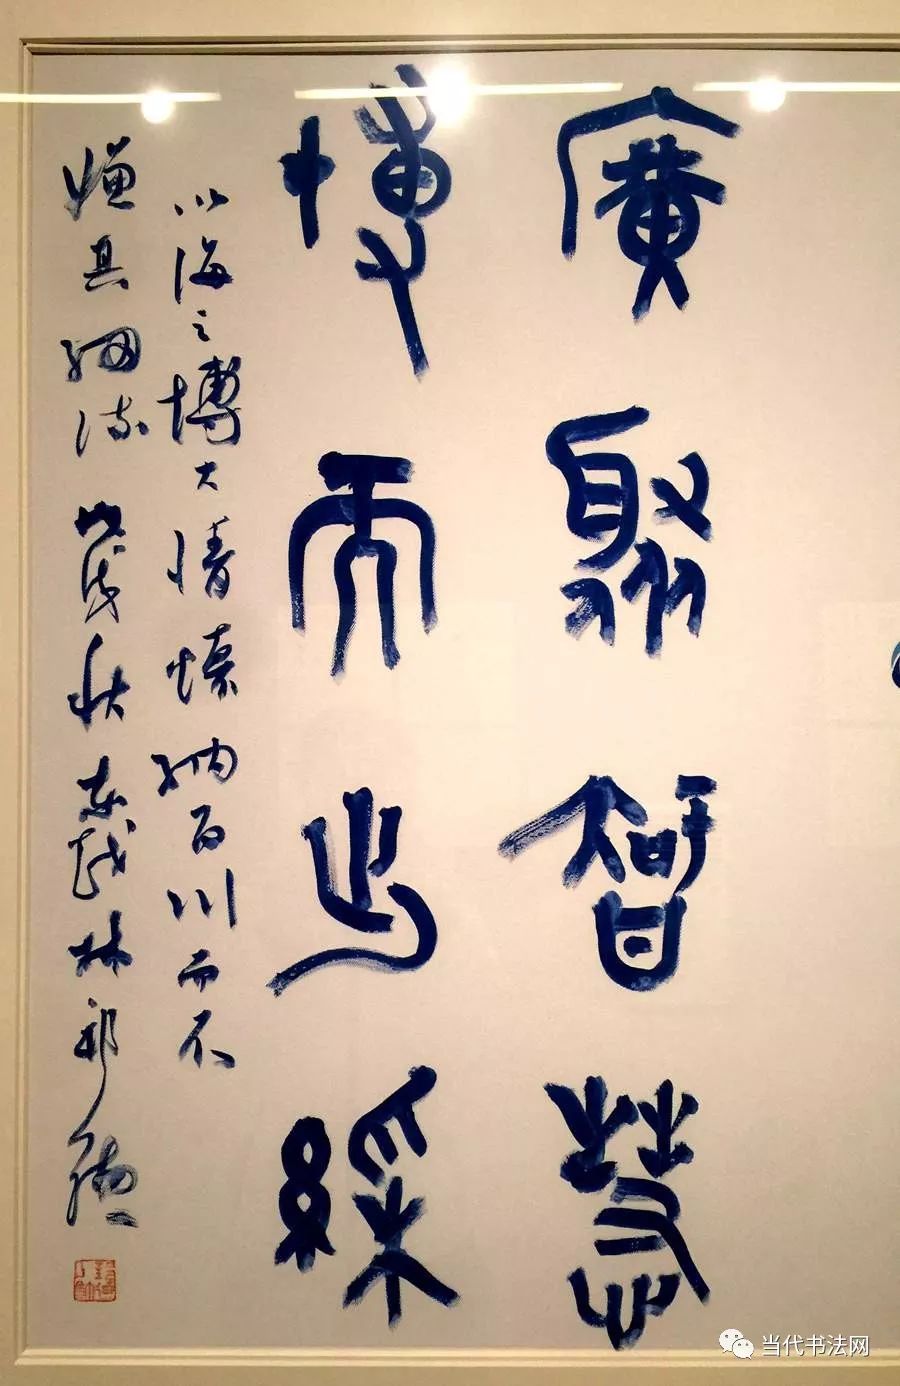 廣聚智慧
博而出綵
以海之博大情懷納百川而不
嫌其細流 戊戌秋東越林邦德
当代书法网